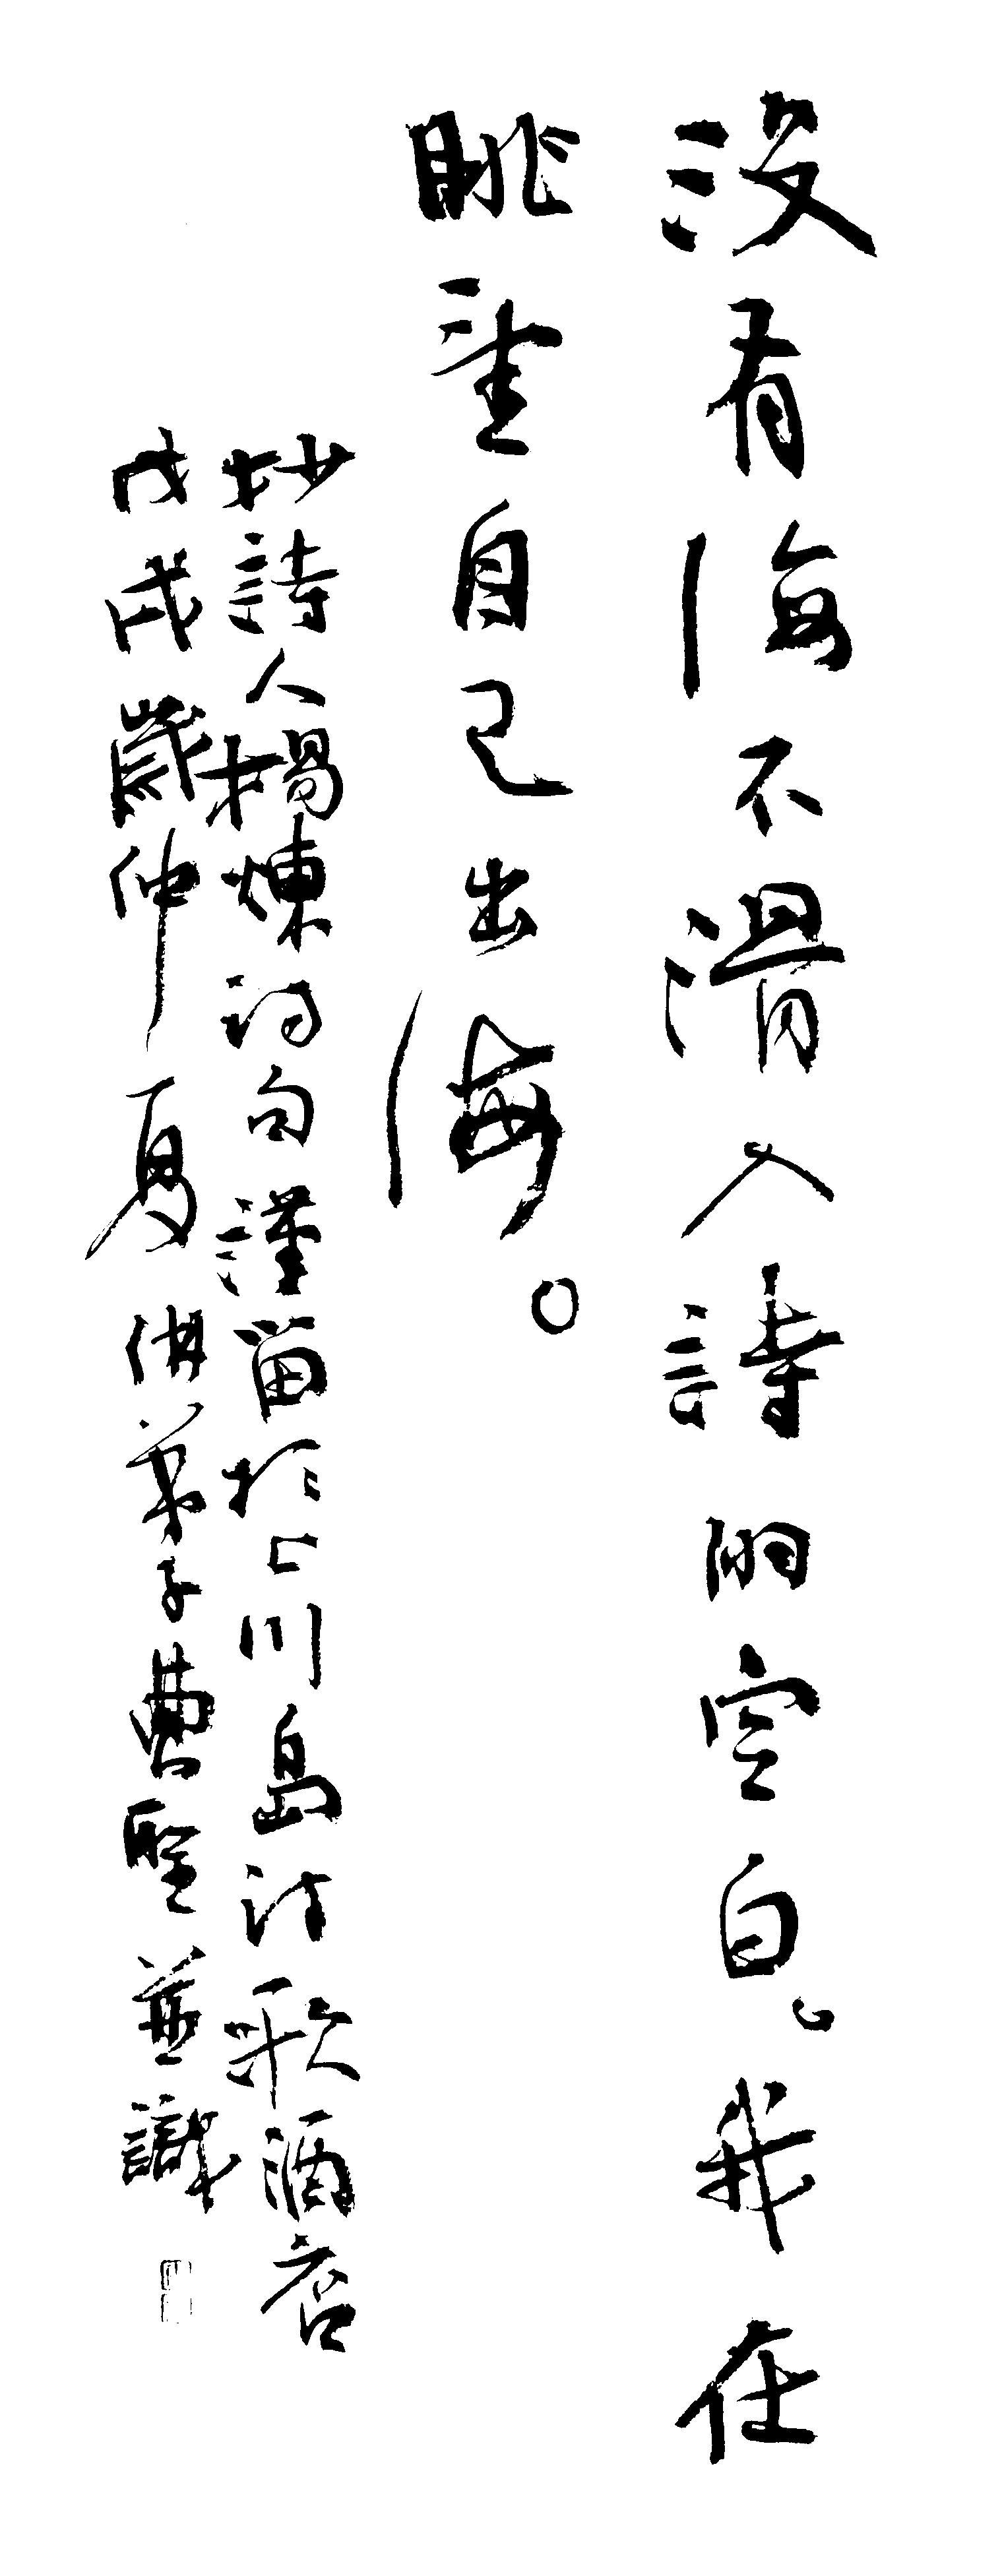 没有海不滑入詩的空白。我在
眺望自己出海。
抄詩人楊煉詩句謹留於上川島詩歌酒店
戊戌歲仲夏佛弟子曹聖並識